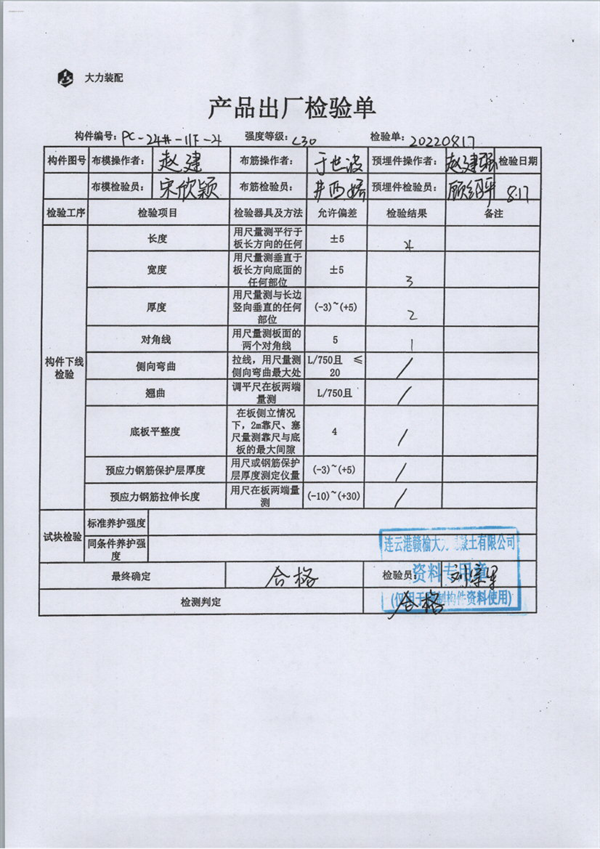 大力装配
产品出厂检验单
构件编号: PC-24#-11F-4 强度等级: C30 检验单: 20220817
构件图号 布模操作者: 赵建 布筋操作者: 于世波 预埋件操作者: 赵建强 检验日期
布模检验员: 宋欣颖 布筋检验员: 预埋件检验员: 8.17
检验工序 检验项目 检验器具及方法 允许偏差 检验结果 备注
构件下线检验
长度 用尺量测平行于板长方向的任何 ±5 4
宽度 用尺量测垂直于板长方向底面的任何部位 ±5 3
厚度 用尺量测与长边竖向垂直的任何部位 (-3)~(+5) 2
对角线 用尺量测板面的两个对角线 5 1
侧向弯曲 拉线，用尺量测侧向弯曲最大处 L/750且 ≤20 /
翘曲 调平尺在板两端量测 L/750且 /
底板平整度 在板侧立情况下，2m靠尺、塞尺量测靠尺与底板的最大间隙 4 /
预应力钢筋保护层厚度 用尺或钢筋保护层厚度测定仪量 (-3)~(+5) /
预应力钢筋拉伸长度 用尺在板两端量测 (-10)~(+30) /
试块检验 标准养护强度
同条件养护强度
最终确定 合格 检验员:
检测判定 合格
连云港赣榆大力 凝土有限公司
资料专用章
(仅用于 制构件资料使用)